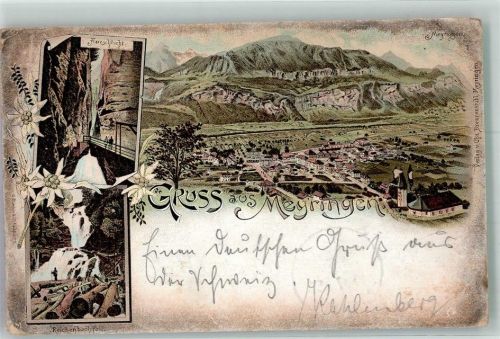 Aareschlucht.
Meyringen.
Gruss aus Meyringen.
Einen deutschen Gruß aus
der Schweiz
Kahlenberg
Reichenbachfall.